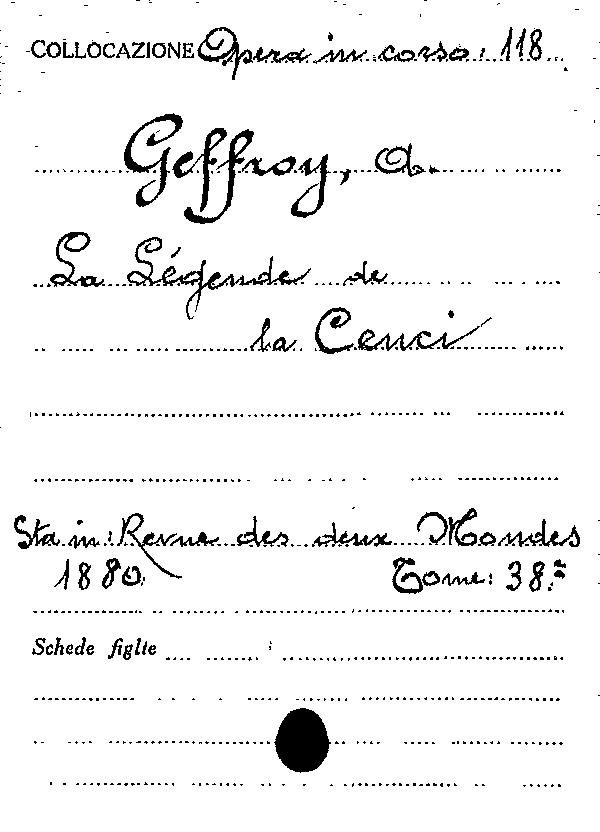 COLLOCAZIONE Opera in corso. 118
Geffroy, A.
La Légende de
la Cenci
Sta in: Revue des deux Mondes
1880. Tome: 38.
Schede figlie